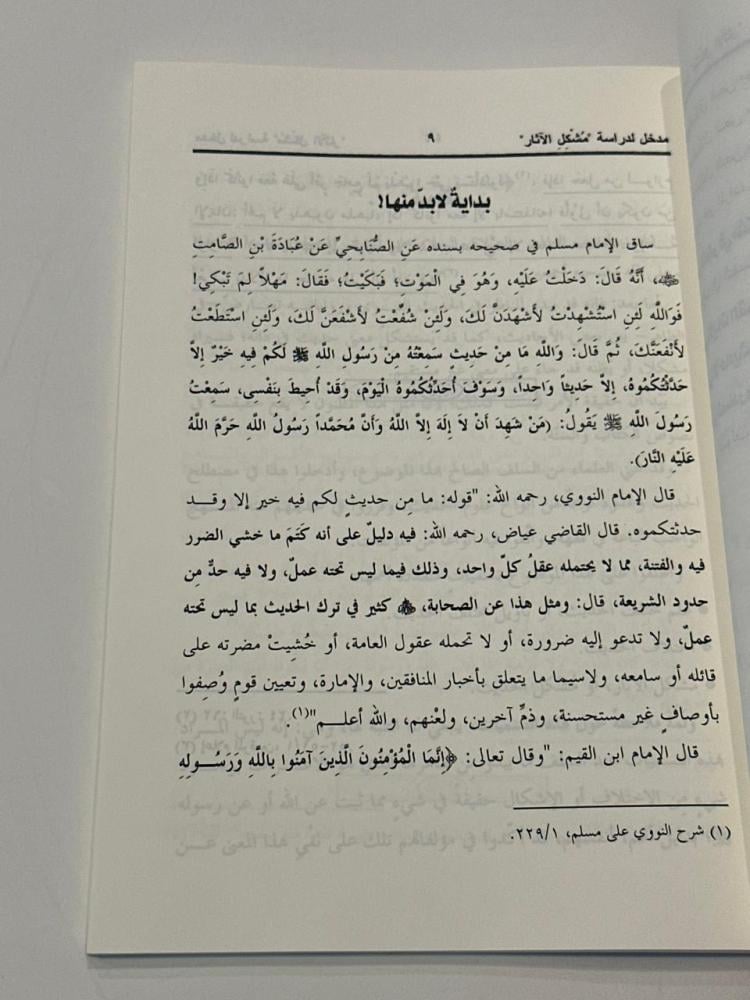 مدخل لدراسة "مُشْكِلِ الآثار" ٩
بدايةٌ لابدّ منها!
ساق الإمام مسلم في صحيحه بسنده عَنِ الصُّنَابِحِيِّ عَنْ عُبَادَةَ بْنِ الصَّامِتِ
ﷺ، أَنَّهُ قَالَ: دَخَلْتُ عَلَيْهِ، وَهُوَ فِي الْمَوْتِ؛ فَبَكَيْتُ؛ فَقَالَ: مَهْلاً لِمَ تَبْكِي!
فَوَاللَّهِ لَئِنِ اسْتُشْهِدْتُ لأَشْهَدَنَّ لَكَ، وَلَئِنْ شُفِّعْتُ لأَشْفَعَنَّ لَكَ، وَلَئِنِ اسْتَطَعْتُ
لأَنْفَعَنَّكَ، ثُمَّ قَالَ: وَاللَّهِ مَا مِنْ حَدِيثٍ سَمِعْتُهُ مِنْ رَسُولِ اللَّهِ ﷺ لَكُمْ فِيهِ خَيْرٌ إِلاَّ
حَدَّثْتُكُمُوهُ، إِلاَّ حَدِيثاً وَاحِداً، وَسَوْفَ أُحَدِّثُكُمُوهُ الْيَوْمَ، وَقَدْ أُحِيطَ بِنَفْسِي، سَمِعْتُ
رَسُولَ اللَّهِ ﷺ يَقُولُ: (مَنْ شَهِدَ أَنْ لاَ إِلَهَ إِلاَّ اللَّهُ وَأَنَّ مُحَمَّداً رَسُولُ اللَّهِ حَرَّمَ اللَّهُ
عَلَيْهِ النَّارَ).
قال الإمام النووي، رحمه الله: "قوله: ما مِن حديثٍ لكم فيه خير إلا وقد
حدثتكموه. قال القاضي عياض، رحمه الله: فيه دليلٌ على أنه كَتَمَ ما خشي الضرر
فيه والفتنة، مما لا يحتمله عقلُ كلّ واحد، وذلك فيما ليس تحته عملٌ، ولا فيه حدٌّ مِن
حدود الشريعة، قال: ومثل هذا عن الصحابة، كثير في ترك الحديث بما ليس تحته
عملٌ، ولا تدعو إليه ضرورة، أو لا تحمله عقول العامة، أو خُشِيتْ مضرته على
قائله أو سامعه، ولاسيما ما يتعلق بأخبار المنافقين، والإمارة، وتعيين قومٍ وُصِفوا
بأوصافٍ غير مستحسنة، وذمِّ آخرين، ولعْنهم، والله أعلم"(١).
قال الإمام ابن القيم: "وقال تعالى: ﴿إِنَّمَا الْمُؤْمِنُونَ الَّذِينَ آمَنُوا بِاللَّهِ وَرَسُولِهِ
(١) شرح النووي على مسلم، ٢٢٩/١.